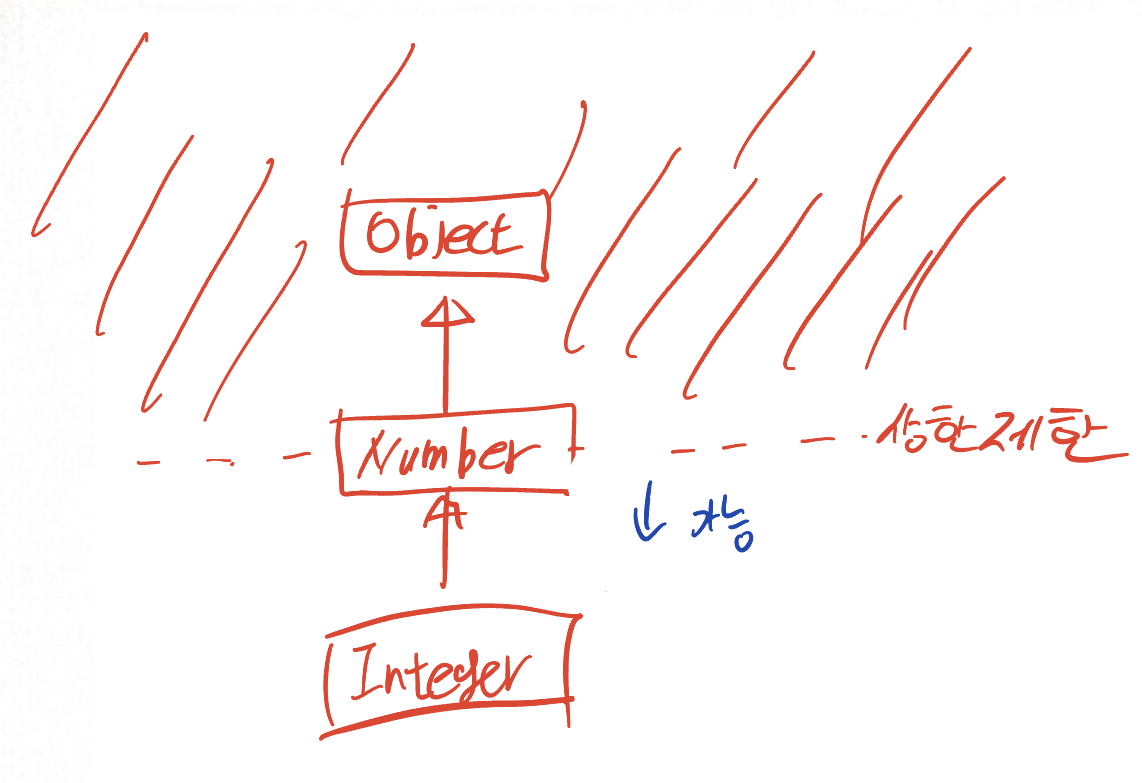 Object
Number
상한제한
↓ 가능
Integer